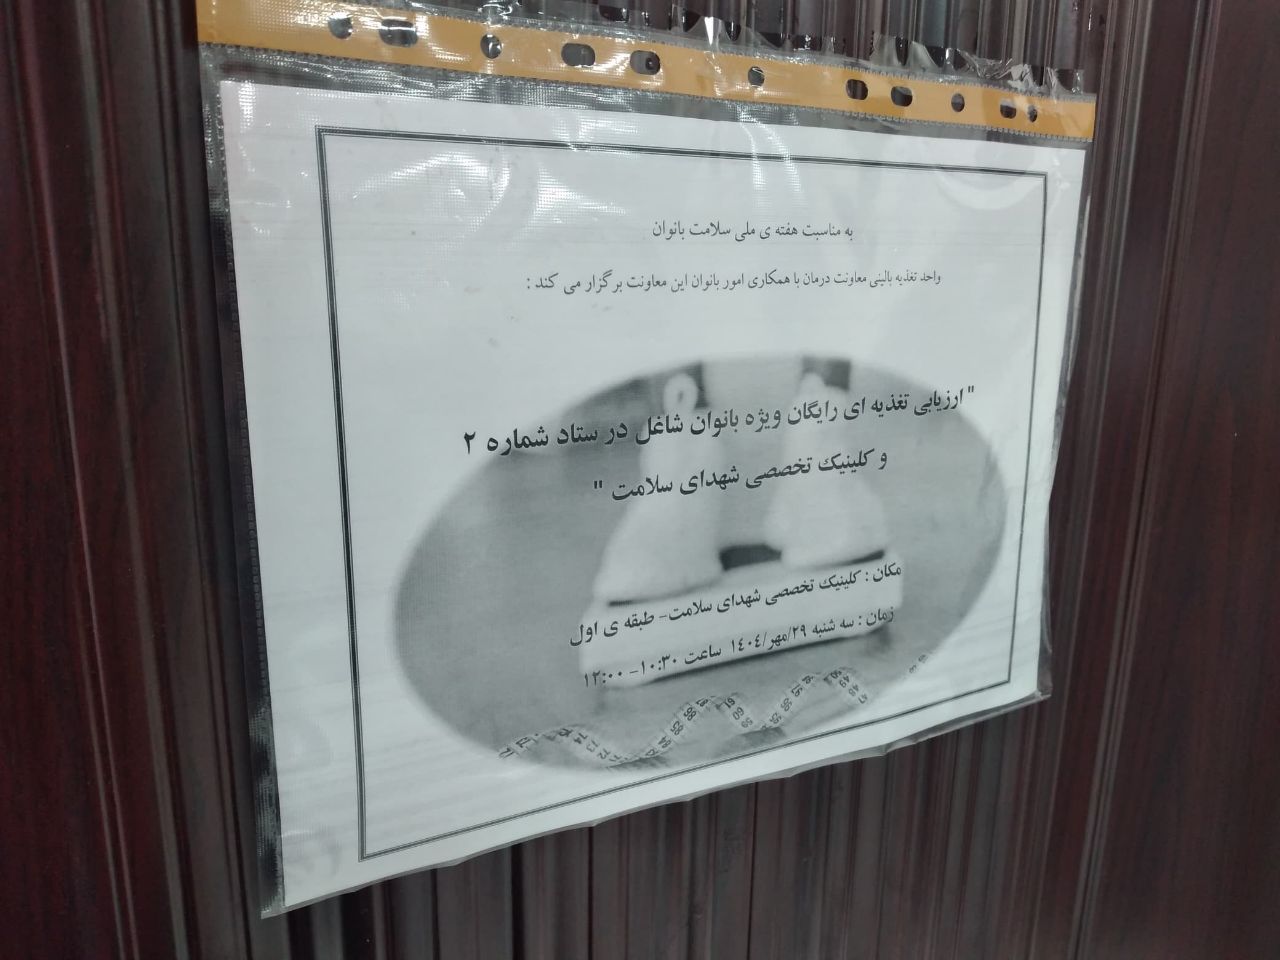 به مناسبت هفته ی ملی سلامت بانوان
واحد تغذیه بالینی معاونت درمان با همکاری امور بانوان این معاونت برگزار می کند :
" ارزیابی تغذیه ای رایگان ویژه بانوان شاغل در ستاد شماره ۲
و کلینیک تخصصی شهدای سلامت "
مکان : کلینیک تخصصی شهدای سلامت- طبقه ی اول
زمان : سه شنبه ۲۹/مهر/۱۴۰۴ ساعت ۱۰:۳۰- ۱۲:۰۰